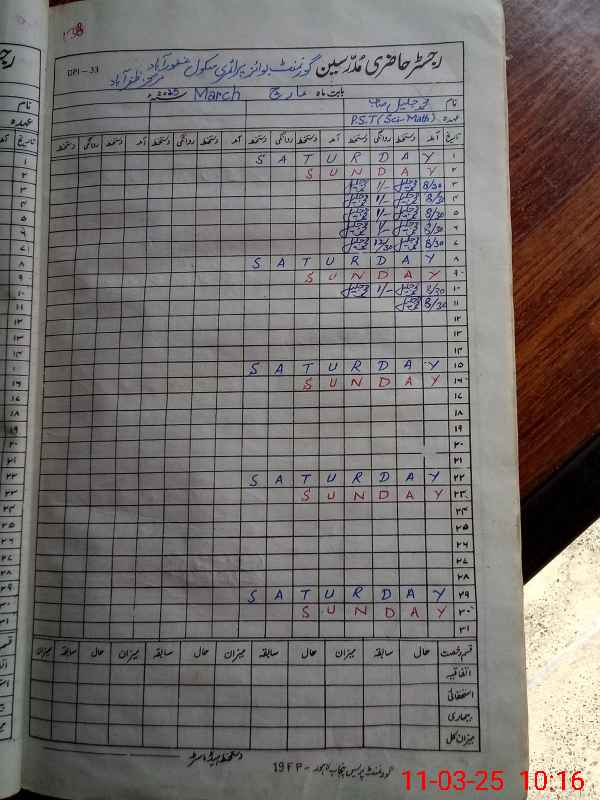 138
DPI - 33
رجسٹر حاضری مدرسین گورنمنٹ بوائز پرائمری سکول غفورآباد
مرکز ظفرآباد
بابت ماہ مارچ March 2025
نام محمد جلیل صاحب
عہدہ P.S.T (Sci-Math)
تاریخ آمد دستخط روانگی دستخط آمد دستخط روانگی دستخط آمد دستخط روانگی دستخط آمد دستخط روانگی دستخط
۱ S A T U R D A Y
۲ S U N D A Y
۳ 8/30 1/-
۴ 8/30 1/-
۵ 8/30 1/-
۶ 8/30 1/-
۷ 8/30 12/30
۸ S A T U R D A Y
۹ S U N D A Y
۱۰ 8/30 1/-
۱۱ 8/30
۱۲
۱۳
۱۴
۱۵ S A T U R D A Y
۱۶ S U N D A Y
۱۷
۱۸
۱۹
۲۰
۲۱
۲۲ S A T U R D A Y
۲۳ S U N D A Y
۲۴
۲۵
۲۶
۲۷
۲۸
۲۹ S A T U R D A Y
۳۰ S U N D A Y
۳۱
قسم رخصت حال سابقہ میزان حال سابقہ میزان حال سابقہ میزان حال سابقہ میزان
اتفاقیہ
استحقاقی
بیماری
میزان کل
دستخط ہیڈ ماسٹر
گورنمنٹ پریس پنجاب لاہور - 19FP
11-03-25 10:16